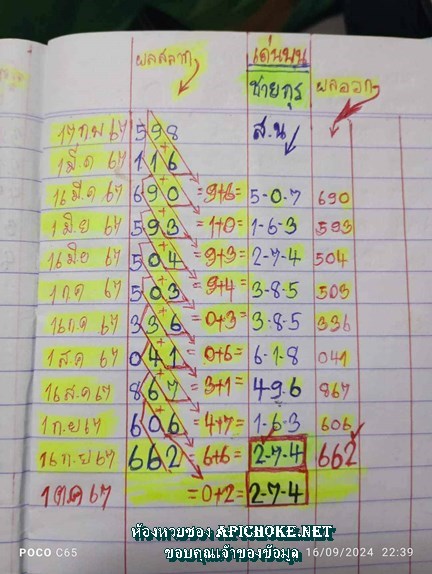 ผลสลาก เด่นบน
ชายกุร ผลออก
17 ก.พ 67 598 ส.น
1 มี.ค 67 116
16 มี.ค 67 690 =9+6= 5-0-7 690
1 มิ.ย 67 593 =1+0= 1-6-3 593
16 มิย 67 504 =9+3= 2-7-4 504
1 กค 67 503 =9+4= 3-8-5 503
16 กค 67 336 =0+3= 3-8-5 336
1 ส.ค 67 041 =0+6= 6-1-8 041
16 ส.ค 67 867 =3+1= 4-9-6 867
1 ก.ย 67 606 =4+7= 1-6-3 606
16 ก.ย 67 662 =6+6= 2-7-4 662
1 ตค 67 =0+2= 2-7-4
ห้องหวยซอง APICHOKE.NET
POCO C65 ขอบคุณเจ้าของข้อมูล 16/09/2024 22:39